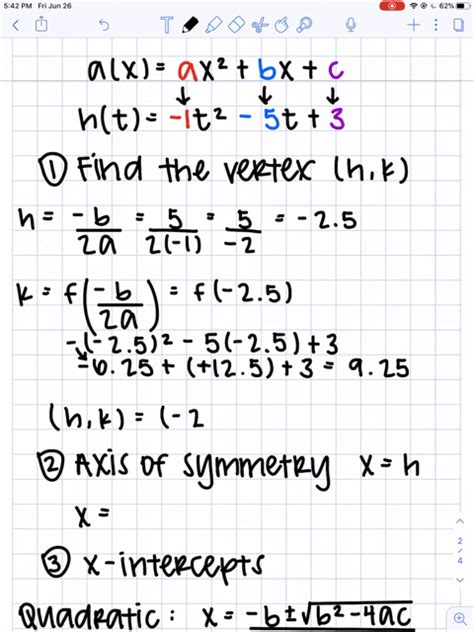 5:42 PM Fri Jun 26 62%
a(x) = ax² + bx + c
h(t) = -1t² - 5t + 3
① Find the vertex (h,k)
h = -b/2a = 5/2(-1) = 5/-2 = -2.5
k = f(-b/2a) = f(-2.5)
-(-2.5)² - 5(-2.5) + 3
= -6.25 + (+12.5) + 3 = 9.25
(h,k) = (-2
② Axis of symmetry x = h
x =
③ x-intercepts
2
4
Quadratic: x = -b ± √b² - 4ac